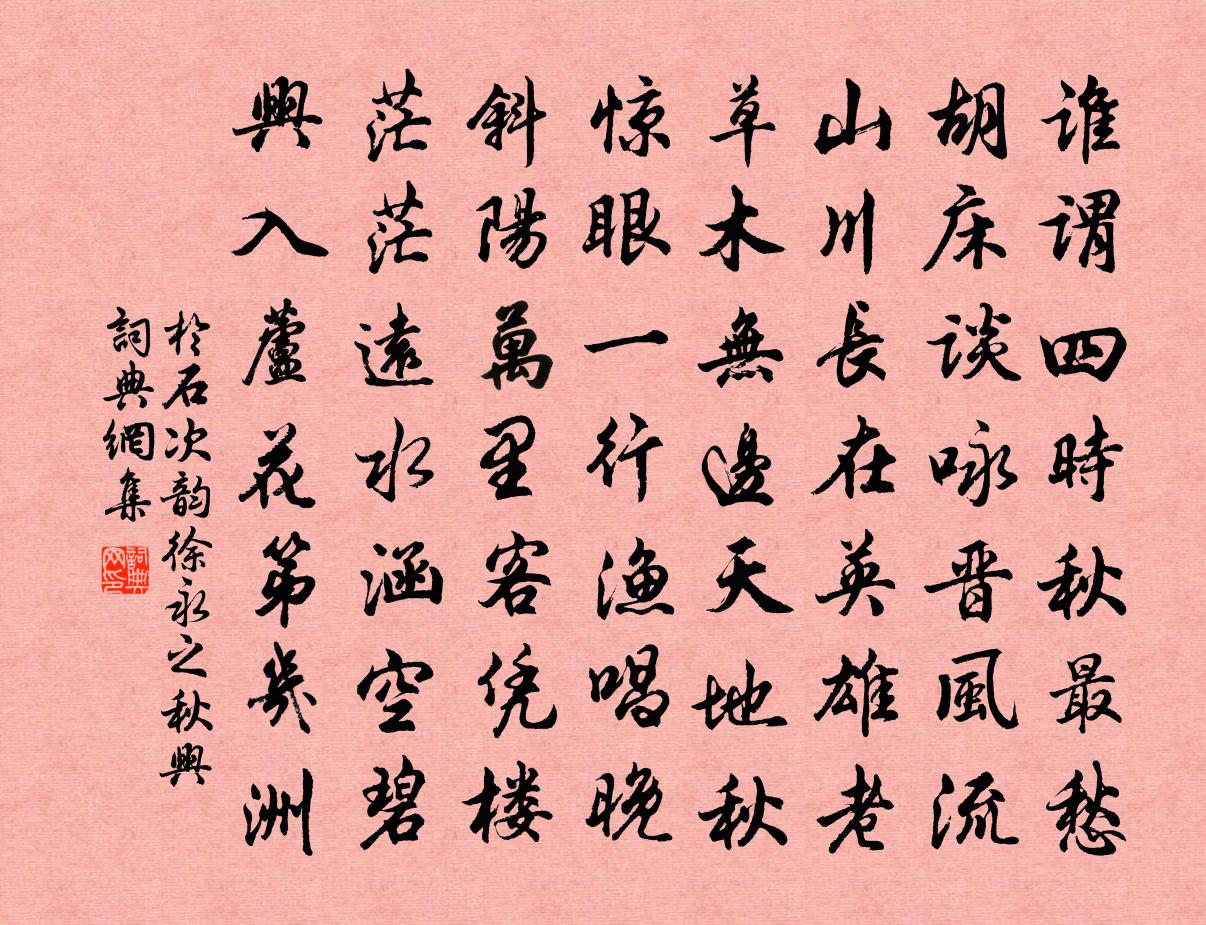 谁謂四時秋最愁
胡床談咏晋風流
山川長在英雄老
草木無邊天地秋
惊眼一行漁唱晚
斜陽萬里客凭楼
茫茫遠水涵空碧
興入蘆花第幾洲
於石次韵徐永之秋興
詞典網集
詞典网印